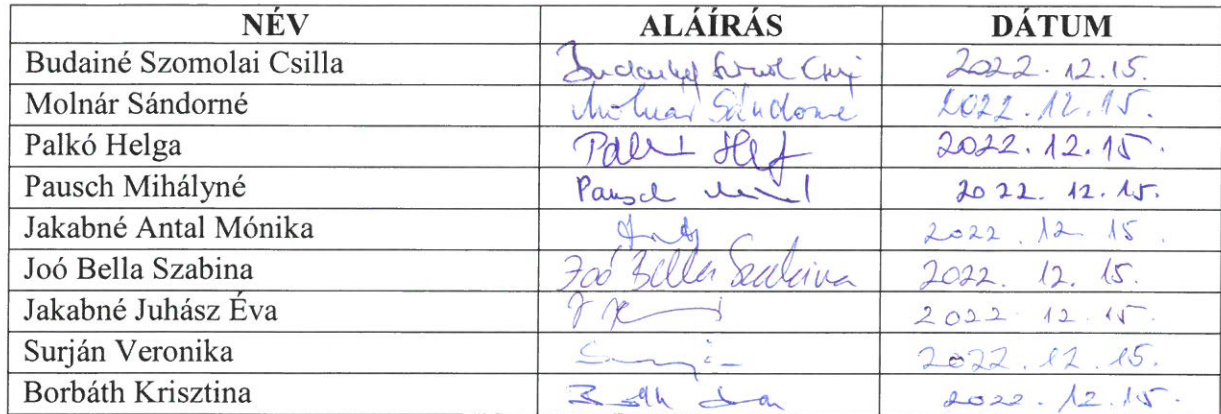 NÉV ALÁÍRÁS DÁTUM
Budainé Szomolai Csilla 2022. 12.15.
Molnár Sándorné Molnár Sándorné 2022. 12. 15.
Palkó Helga 2022. 12. 15.
Pausch Mihályné Pausch 2022. 12. 15.
Jakabné Antal Mónika 2022. 12. 15.
Joó Bella Szabina Joó Bella Szabina 2022. 12. 15.
Jakabné Juhász Éva 2022. 12. 15.
Surján Veronika 2022. 12. 15.
Borbáth Krisztina 2022. 12. 15.